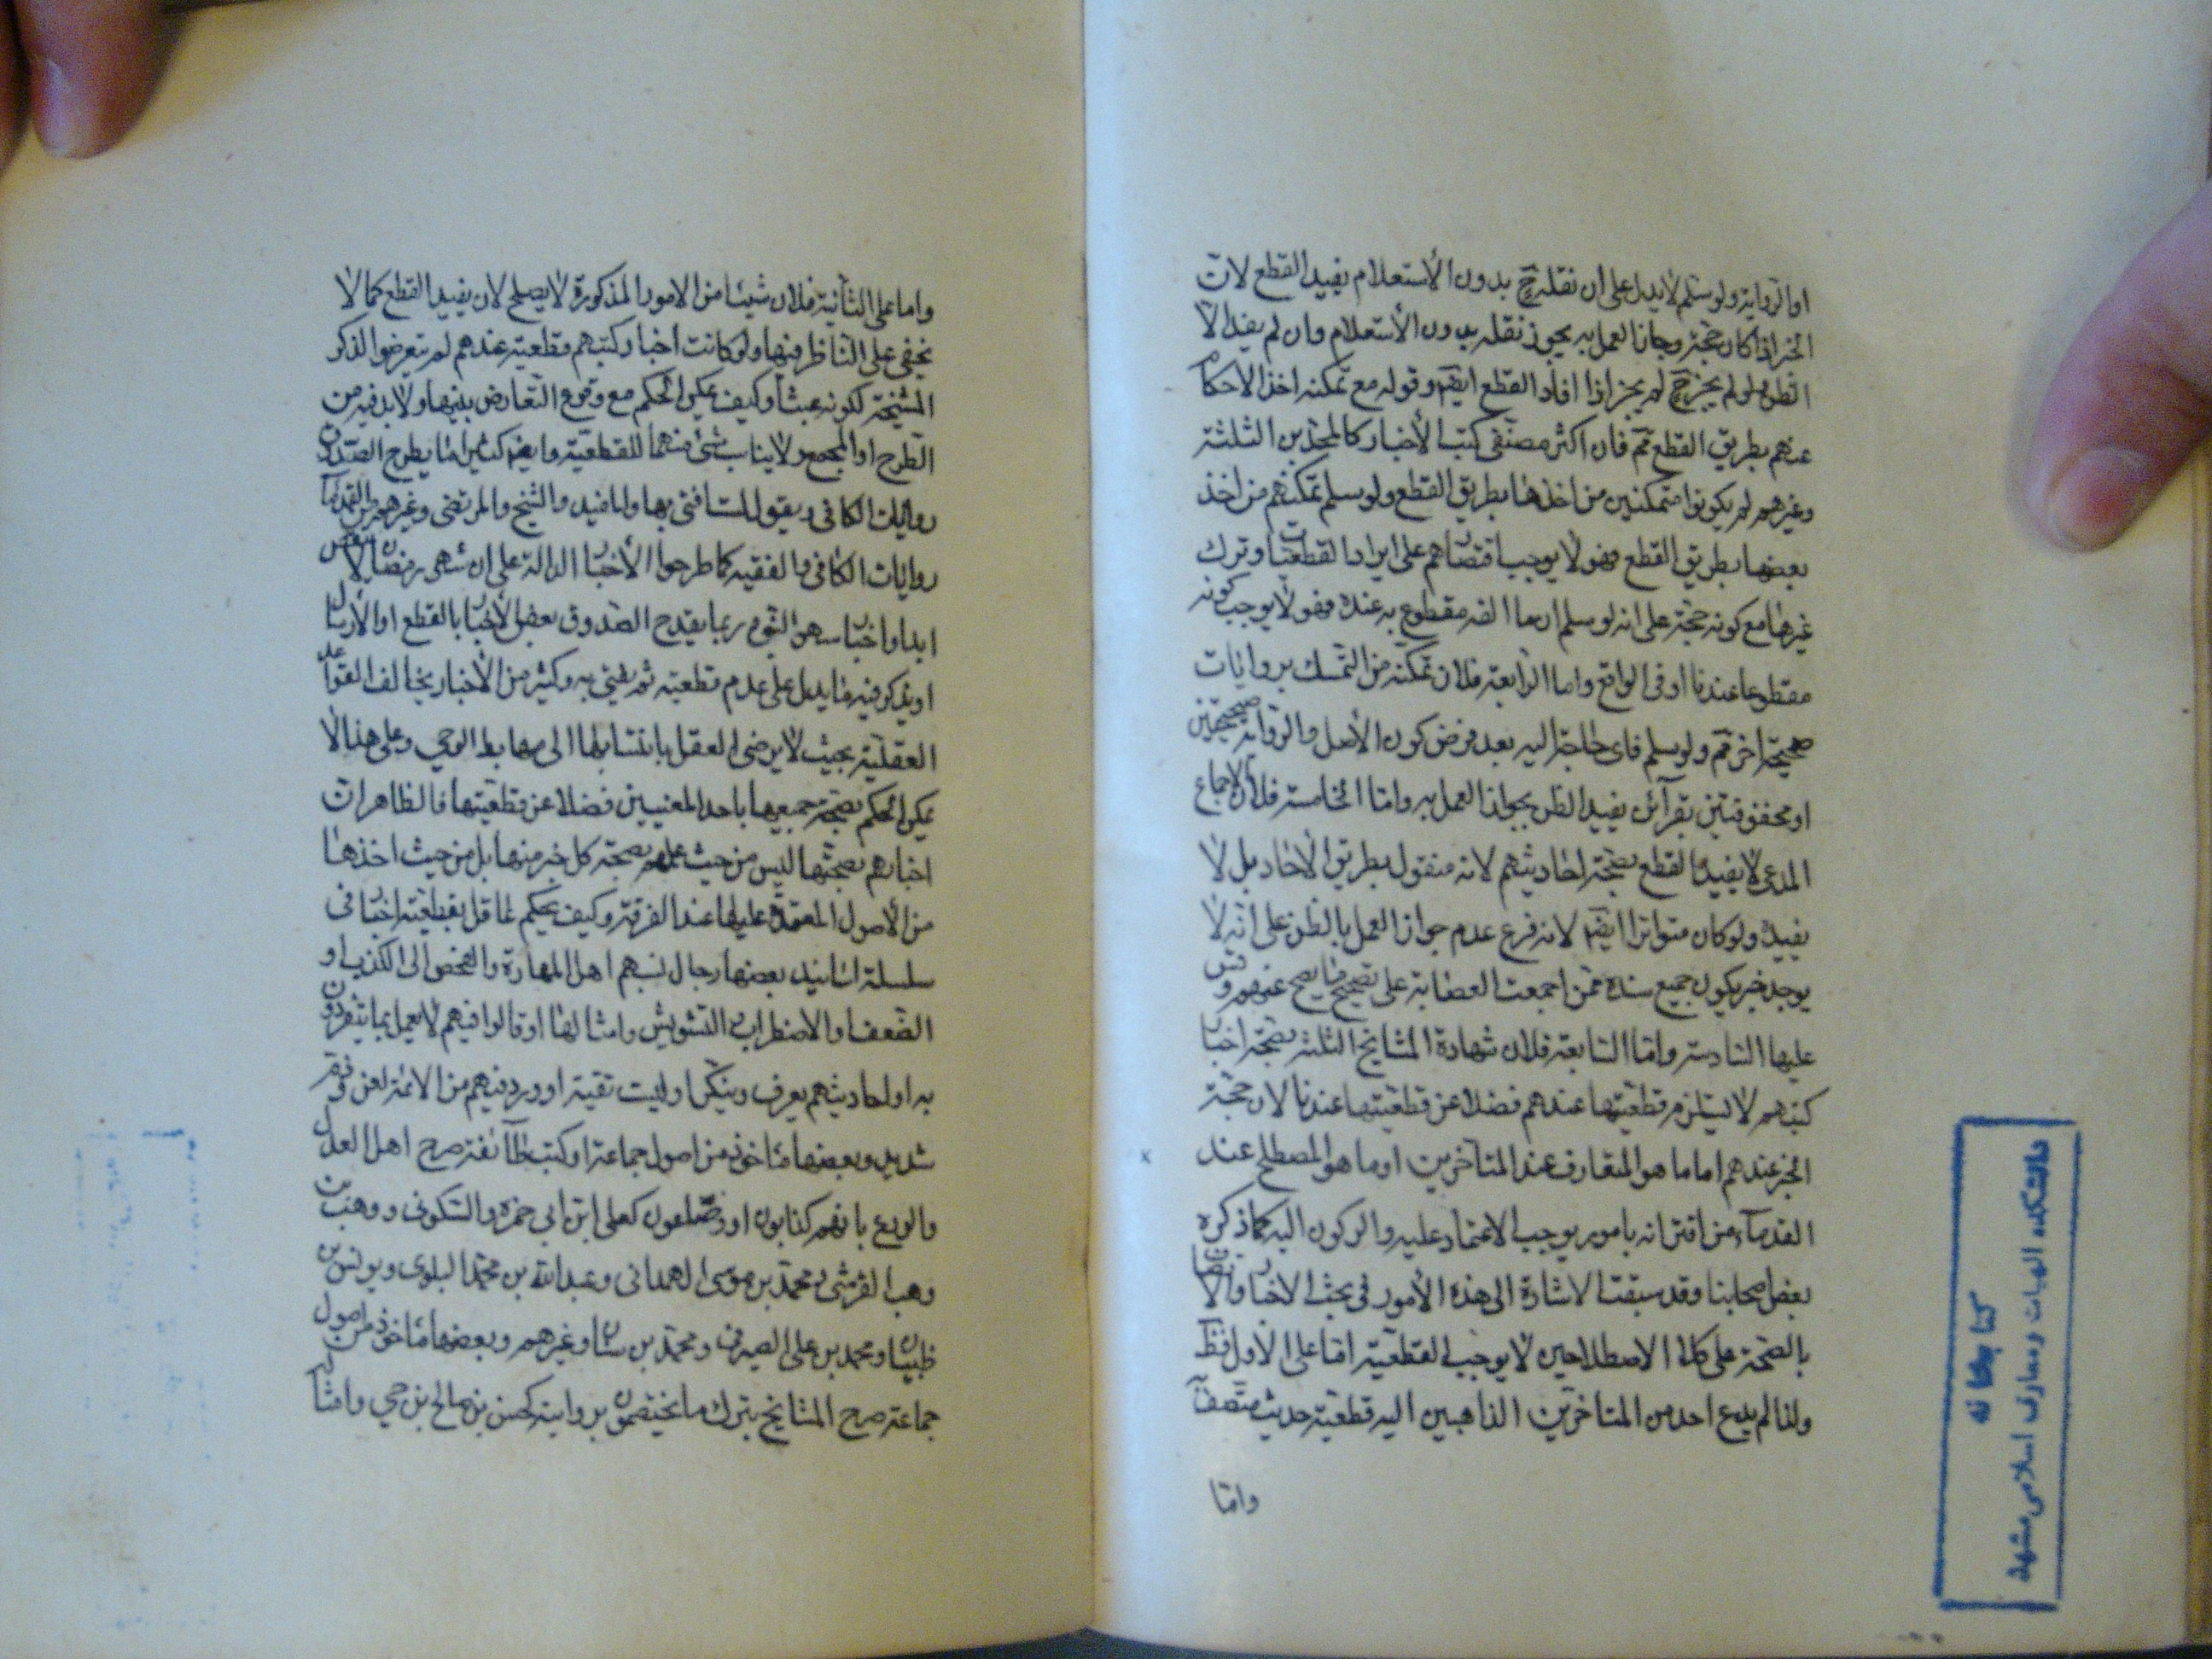 او الرواية ولو سلم لا يدل على ان نقله ح بدون الاستعلام يفيد القطع لان
الخبر اذا كان حجة وجاز العمل به يجوز نقله بدون الاستعلام وان لم يفد الا
الظن ولو لم يجز ح لم يجز اذا افاد القطع ايضا وقوله مع تمكنه اخذ الاحكام
عنهم بطريق القطع مم فان اكثر مصنفى كتب الأخبار كالمحمدين الثلثة
وغيرهم لم يكونوا متمكنين من اخذها بطريق القطع ولو سلم تمكنهم من اخذ
بعضها بطريق القطع فهو لا يوجب اقتصارهم على ايراد القطعيات وترك
غيرها مع كونه حجة على انه لو سلم ان ما الفه مقطوع به عنده فهو لا يوجب كونه
مقطوعا عندنا او فى الواقع واما الرابعة فلان تمكنه من التمسك بروايات
صحيحة اخر مم ولو سلم فاى حاجة اليه بعد فرض كون الأصل والرواية صحيحتين
او محفوفتين بقرآئن يفيد الظن بجواز العمل به وامّا الخامسة فلان الاجماع
المدعى لا يفيد القطع بصحة احاديثهم لانه منقول بطريق الاحاد بل لا
يفيده ولو كان متواترا ايضا لانه فرع عدم جواز العمل بالظن على انّه لا
يوجد خبر يكون جميع سنده ممن اجمعت العصابة على تصحيح ما يصح عنهم وقس
عليها السادسة وامّا السابعة فلان شهادة المشايخ الثلثة بصحة اخبار
كتبهم لا يستلزم قطعيّتها عندهم فضلا عن قطعيّتها عندنا لان حجّة
الخبر عندهم اما ما هو المتعارف عند المتأخرين او ما هو المصطلح عند
القدمآء من اقترانه بامور يوجب الاعتماد عليه والركون اليه كما ذكره
بعض اصحابنا وقد سبقت الاشارة الى هذه الأمور فى بحث الاخبار والاتصاف
بالصحة على كلا الاصطلاحين لا يوجب القطعية امّا على الأول فظ
ولذا لم يدع احد من المتاخرين الذاهبين اليه قطعية حديث متصف
وامّا
واما على الثانية فلان شيئا من الامور المذكورة لا يصلح لان يفيد القطع كما لا
يخفى على الناظر فيها ولو كانت اخبار كتبهم قطعية عندهم لم يتعرضوا لذكر
المشيخة لكونه عبثا وكيف يمكن الحكم مع وقوع التعارض بينها ولا بد فيه من
الطرح او الجمع ولا يناسب شئ منهما للقطعية وايضا كثيرا ما يطرح الصدوق
روايات الكافى ويقول لست افتى بها والمفيد والشيخ والمرتضى وغيرهم من القدمآء
روايات الكافى والفقيه كما طرحوا الأخبار الدالة على ان شهر رمضان لا ينقص
ابدا واخبار سهو النوم ربما يقدح الصدوق بعض الأخبار بالقطع او الأرسال
او يذكر فيه ما يدل على عدم قطعيته ثم يفتى به وكثير من الأخبار يخالف القواعد
العقلية بحيث لا يرضى العقل بانتسابها الى مهابط الوحى وعلى هذا لا
يمكن الحكم بصحة جميعها باحد المعنيين فضلا عن قطعيتها فالظاهر ان
اخبارهم بصحتها ليس من حيث علمهم بصحة كل خبر منها بل من حيث اخذها
من الأصول المعتمدة عليها عند الفرقة وكيف يحكم عاقل بقطعية اخبار فى
سلسلة اسانيد بعضها رجال نسبهم اهل المهارة والفحص الى الكذب او
الضعف او الاضطراب التشويش وامثالها او قالوا فيهم لا يعمل بما يتفردون
به او احاديثهم يعرف وينكر او ليست نقية او ورد فيهم من الائمة لعن وذم
شديد وبعضها مأخوذ من اصول جماعة او كتب طآئفة صرح اهل العدل
والورع بانهم كذابون او وضّاعون كعلى ابن ابى حمزة والسكونى ووهب بن
وهب القرشى ومحمد بن موسى الهمدانى وعبد الله بن محمد البلوى ويونس بن
ظبيان ومحمد بن على الصيرفى ومحمد بن سنان وغيرهم وبعضها مأخوذ من اصول
جماعة صرح المشايخ بترك ما يختصون بروايته كحسن بن صالح بن حى وامثاله
دانشكده الهيات ومعارف اسلامى مشهد
كتابخانه